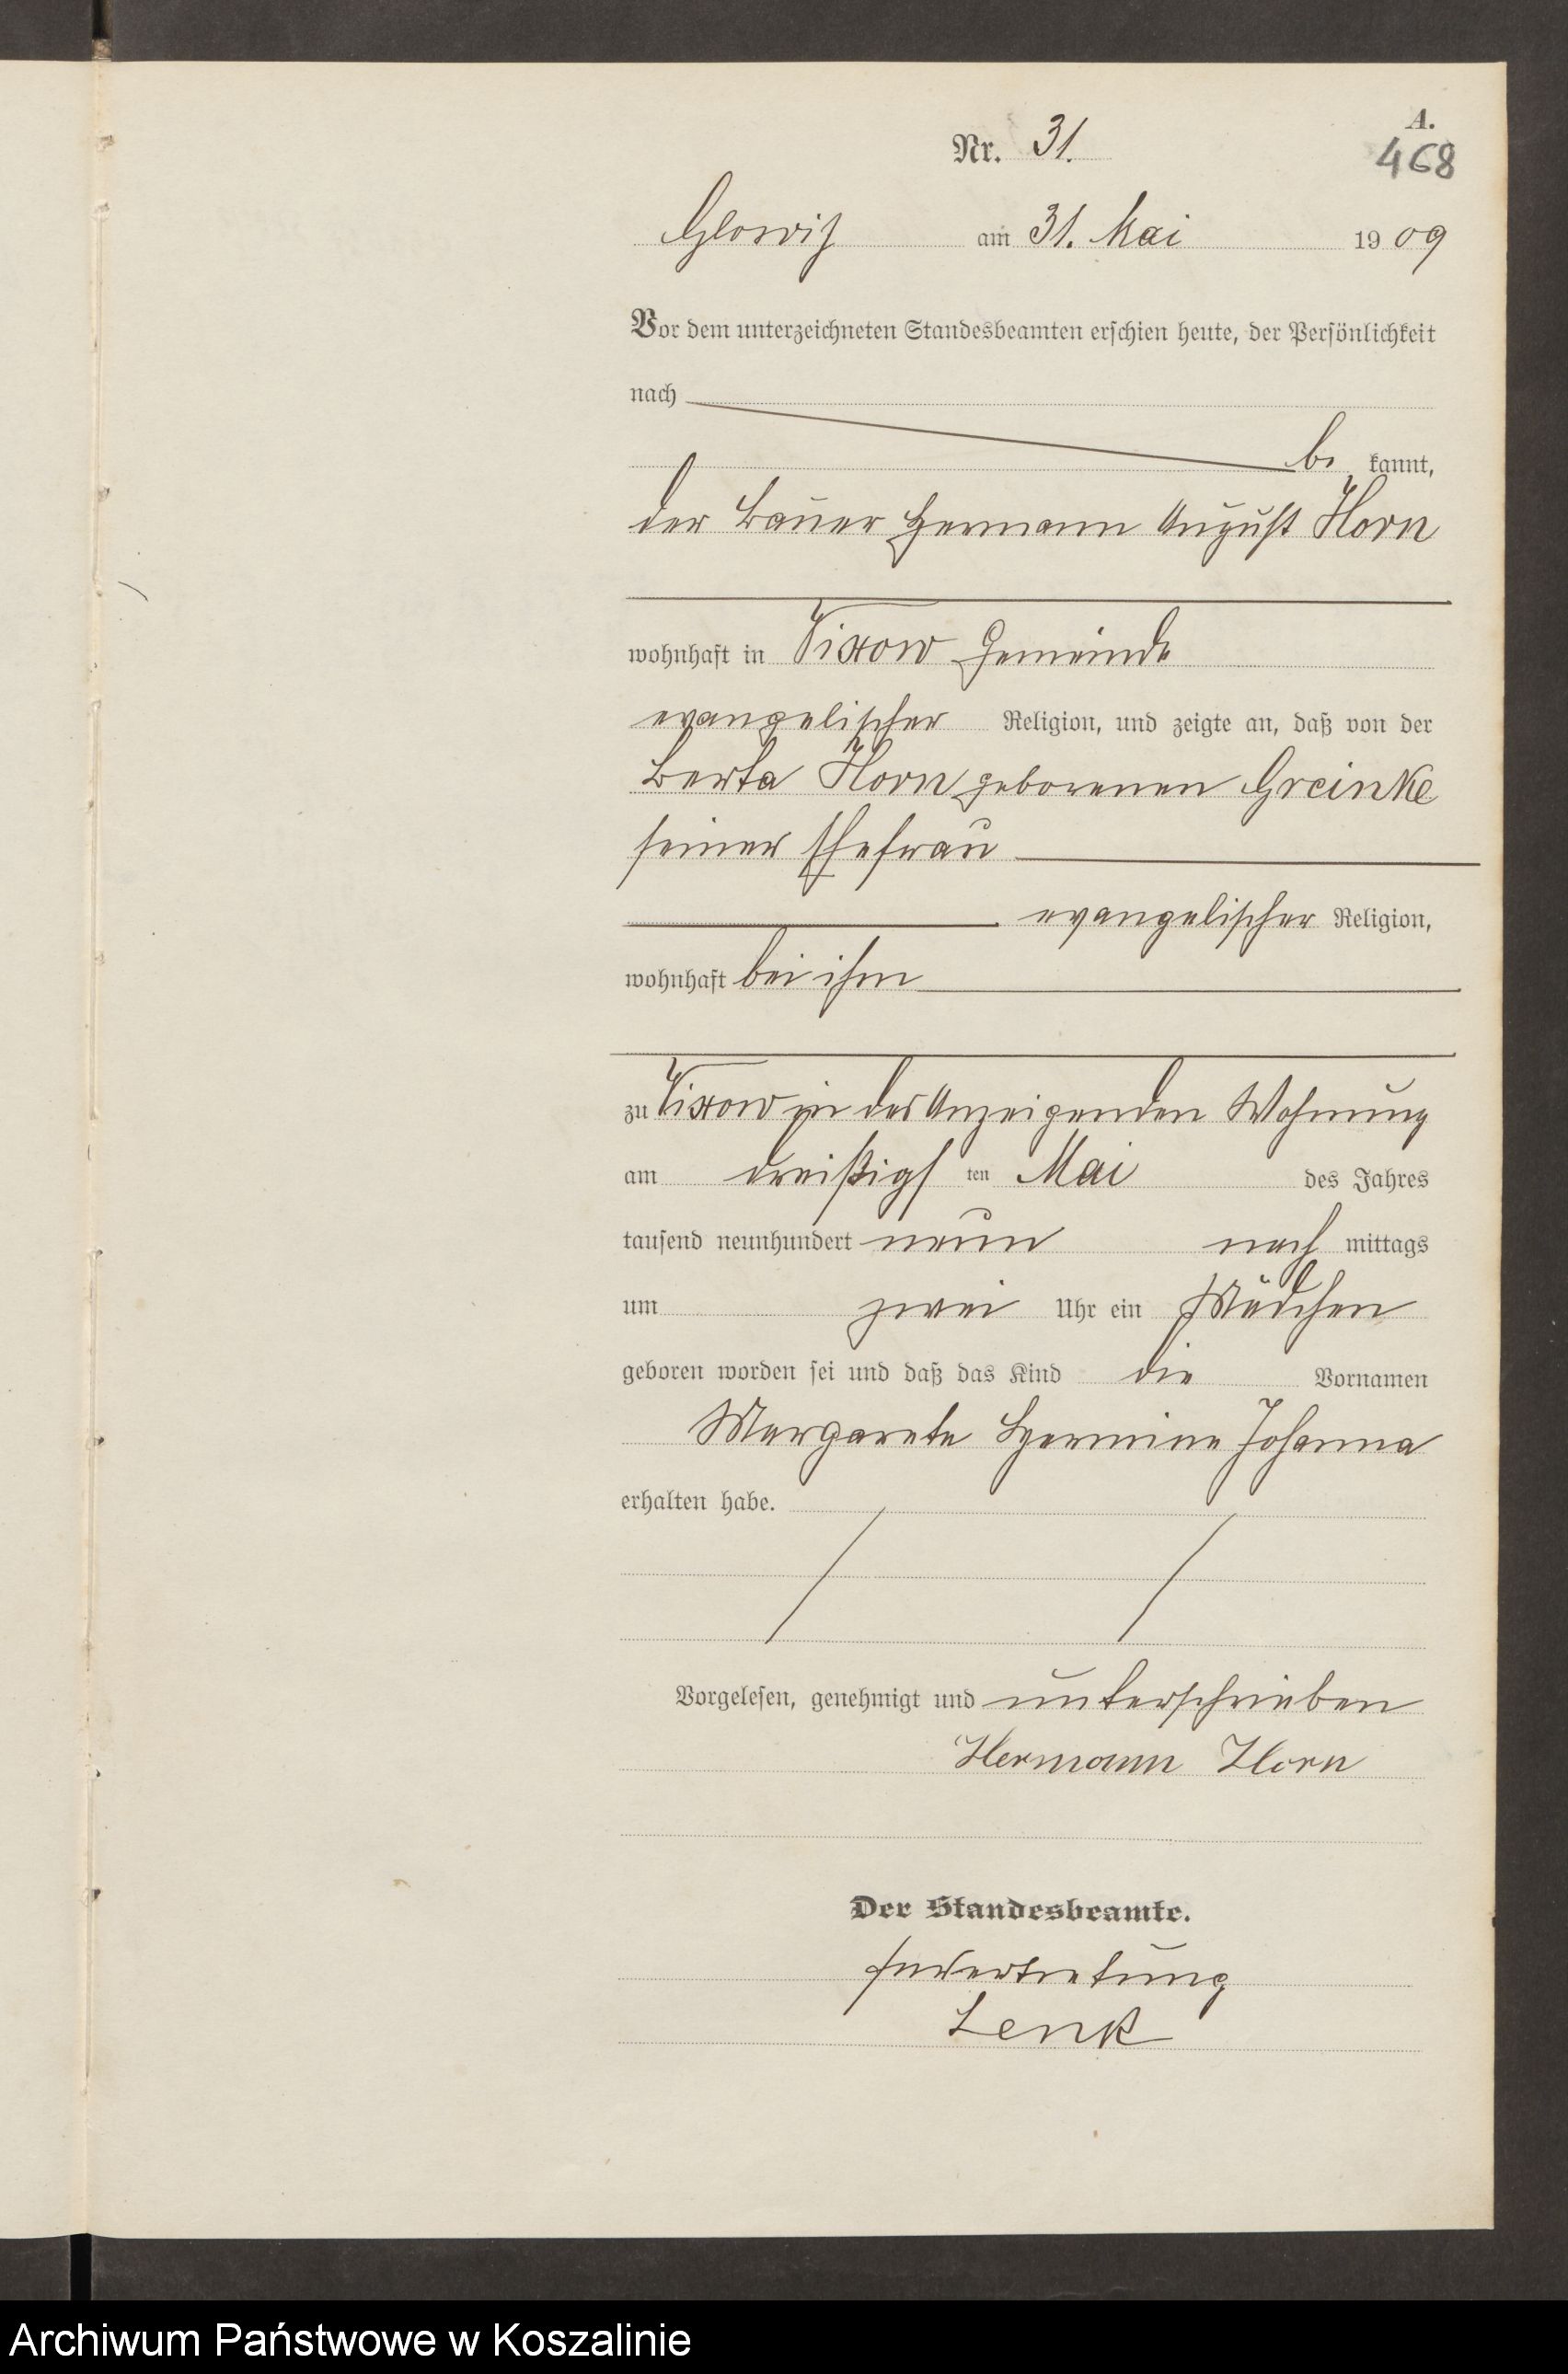 A.
Nr. 31.
468
Glowitz am 31. Mai 1909
Vor dem unterzeichneten Standesbeamten erschien heute, der Persönlichkeit
nach
be kannt,
der Bauer Hermann August Horn
wohnhaft in Vixow Gemeinde
evangelischer Religion, und zeigte an, daß von der
Berta Horn geborenen Greinke
seiner Ehefrau
evangelischer Religion,
wohnhaft bei ihm
zu Vixow in des Anzeigenden Wohnung
am dreißigs ten Mai des Jahres
tausend neunhundert neun nach mittags
um zwei Uhr ein Mädchen
geboren worden sei und daß das Kind die Vornamen
Margarete Hermine Johanna
erhalten habe.
Vorgelesen, genehmigt und unterschrieben
Hermann Horn
Der Standesbeamte.
In Vertretung
Lenk
Archiwum Państwowe w Koszalinie